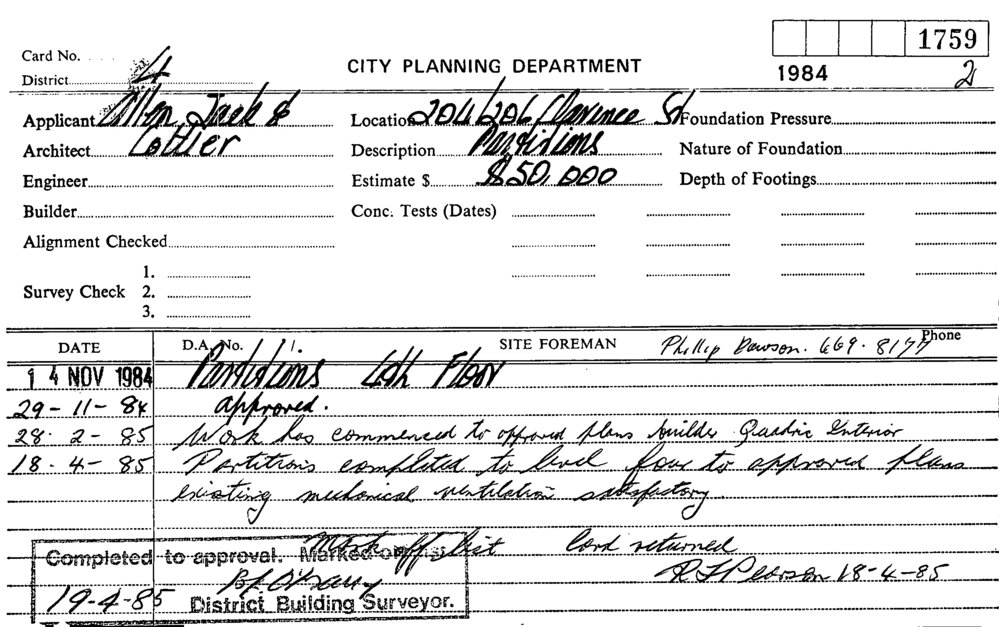 1759
Card No.
CITY PLANNING DEPARTMENT
1984 2
District 4
Applicant Allen Jack & Location 204/206 Clarence St Foundation Pressure
Architect Cottier Description Partitions Nature of Foundation
Engineer Estimate $ $50,000 Depth of Footings
Builder Conc. Tests (Dates)
Alignment Checked
1.
Survey Check 2.
3.
DATE D.A. No. SITE FOREMAN Phillip Dawson. 669-8177 Phone
14 NOV 1984 Partitions 4th Floor
29-11-84 approved.
28-2-85 Work has commenced to approved plans builder Quadric Interior
18-4-85 Partitions completed to level four to approved plans
existing mechanical ventilation satisfactory.
Mark off list Card returned
Completed to approval. Marked off list
R J Pearson 18-4-85
19-4-85 District Building Surveyor.